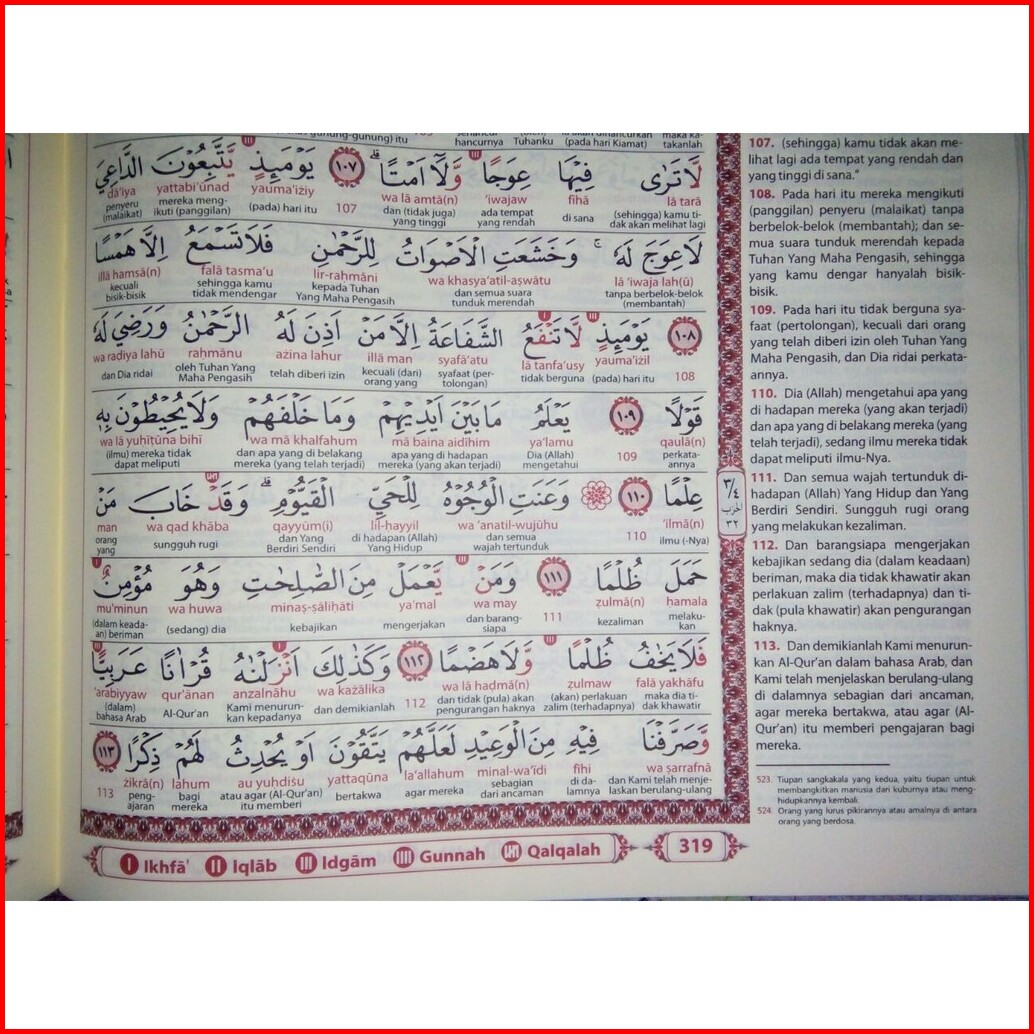 maka ka- (oleh) akan dihancurkan sehancur- gunung-gunung) itu
takanlah (pada hari Kiamat) Tuhanku hancurnya
لَا تَرٰى فِيْهَا عِوَجًا وَّلَآ اَمْتًا ۗ ١٠٧ يَوْمَىِٕذٍ يَّتَّبِعُوْنَ الدَّاعِيَ
lā tarā fīhā ‘iwajaw wa lā amtā(n) 107 yauma'iżiy yattabi‘ūnad dā‘iya
(sehingga) kamu ti- di sana ada tempat dan (tidak juga) (pada) hari itu mereka meng- penyeru
dak akan melihat lagi yang rendah yang tinggi ikuti (panggilan) (malaikat)
لَا عِوَجَ لَهٗ ۚ وَخَشَعَتِ الْاَصْوَاتُ لِلرَّحْمٰنِ فَلَا تَسْمَعُ اِلَّا هَمْسًا
lā ‘iwaja lah(ū) wa khasya‘atil-aṣwātu lir-raḥmāni falā tasma‘u illā hamsā(n)
tanpa berbelok-belok dan semua suara kepada Tuhan sehingga kamu kecuali
(membantah) tunduk merendah Yang Maha Pengasih tidak mendengar bisik-bisik
١٠٨ يَوْمَىِٕذٍ لَّا تَنْفَعُ الشَّفَاعَةُ اِلَّا مَنْ اَذِنَ لَهُ الرَّحْمٰنُ وَرَضِيَ لَهٗ
108 yauma'iżil lā tanfa‘usy syafā‘atu illā man ażina lahur raḥmānu wa raḍiya lahū
(pada) hari itu tidak berguna syafaat (per- kecuali (dari) telah diberi izin oleh Tuhan Yang dan Dia ridai
tolongan) orang yang Maha Pengasih
قَوْلًا ١٠٩ يَعْلَمُ مَا بَيْنَ اَيْدِيْهِمْ وَمَا خَلْفَهُمْ وَلَا يُحِيْطُوْنَ بِهٖ
qaulā(n) 109 ya‘lamu mā baina aidīhim wa mā khalfahum wa lā yuḥīṭūna bihī
perkata- Dia (Allah) apa yang di hadapan dan apa yang di belakang (ilmu) mereka tidak
annya mengetahui mereka (yang akan terjadi) mereka (yang telah terjadi) dapat meliputi
عِلْمًا ١١٠ ۞ وَعَنَتِ الْوُجُوْهُ لِلْحَيِّ الْقَيُّوْمِۗ وَقَدْ خَابَ مَنْ
‘ilmā(n) 110 wa ‘anatil-wujūhu lil-ḥayyil qayyūm(i) wa qad khāba man
ilmu (-Nya) dan semua di hadapan (Allah) dan Yang sungguh rugi orang
wajah tertunduk Yang Hidup Berdiri Sendiri yang
حَمَلَ ظُلْمًا ١١١ وَمَنْ يَّعْمَلْ مِنَ الصّٰلِحٰتِ وَهُوَ مُؤْمِنٌ
ḥamala ẓulmā(n) 111 wa may ya‘mal minaṣ-ṣāliḥāti wa huwa mu'minun
melaku- kezaliman dan barang- mengerjakan kebajikan (sedang) dia (dalam keada-
kan siapa an) beriman
فَلَا يَخٰفُ ظُلْمًا وَّلَا هَضْمًا ١١٢ وَكَذٰلِكَ اَنْزَلْنٰهُ قُرْاٰنًا عَرَبِيًّا
falā yakhāfu ẓulmaw wa lā haḍmā(n) 112 wa każālika anzalnāhu qur'ānan ‘arabiyyaw
maka dia ti- (akan) perlakuan dan tidak (pula) akan dan demikianlah Kami menurun- Al-Qur'an (dalam)
dak khawatir zalim (terhadapnya) pengurangan haknya kan kepadanya bahasa Arab
وَّصَرَّفْنَا فِيْهِ مِنَ الْوَعِيْدِ لَعَلَّهُمْ يَتَّقُوْنَ اَوْ يُحْدِثُ لَهُمْ ذِكْرًا ١١٣
wa ṣarrafnā fīhi minal-wa‘īdi la‘allahum yattaqūna au yuḥdiṡu lahum żikrā(n) 113
dan Kami telah menje- di da- sebagian agar mereka bertakwa atau agar (Al-Qur'an) bagi peng-
laskan berulang-ulang lamnya dari ancaman itu memberi mereka ajaran
٣/٤
الحزب
٣٢
107. (sehingga) kamu tidak akan me-
lihat lagi ada tempat yang rendah dan
yang tinggi di sana."
108. Pada hari itu mereka mengikuti
(panggilan) penyeru (malaikat) tanpa
berbelok-belok (membantah); dan se-
mua suara tunduk merendah kepada
Tuhan Yang Maha Pengasih, sehingga
yang kamu dengar hanyalah bisik-
bisik.
109. Pada hari itu tidak berguna sya-
faat (pertolongan), kecuali dari orang
yang telah diberi izin oleh Tuhan Yang
Maha Pengasih, dan Dia ridai perkata-
annya.
110. Dia (Allah) mengetahui apa yang
di hadapan mereka (yang akan terjadi)
dan apa yang di belakang mereka (yang
telah terjadi), sedang ilmu mereka tidak
dapat meliputi ilmu-Nya.
111. Dan semua wajah tertunduk di-
hadapan (Allah) Yang Hidup dan Yang
Berdiri Sendiri. Sungguh rugi orang
yang melakukan kezaliman.
112. Dan barangsiapa mengerjakan
kebajikan sedang dia (dalam keadaan)
beriman, maka dia tidak khawatir akan
perlakuan zalim (terhadapnya) dan ti-
dak (pula khawatir) akan pengurangan
haknya.
113. Dan demikianlah Kami menurun-
kan Al-Qur'an dalam bahasa Arab, dan
Kami telah menjelaskan berulang-ulang
di dalamnya sebagian dari ancaman,
agar mereka bertakwa, atau agar (Al-
Qur'an) itu memberi pengajaran bagi
mereka.
523. Tiupan sangkakala yang kedua, yaitu tiupan untuk
membangkitkan manusia dari kuburnya atau meng-
hidupkannya kembali.
524. Orang yang lurus pikirannya atau amalnya di antara
orang yang berdosa.
I Ikhfā' II Iqlāb III Idgām IIII Gunnah Qalqalah
319